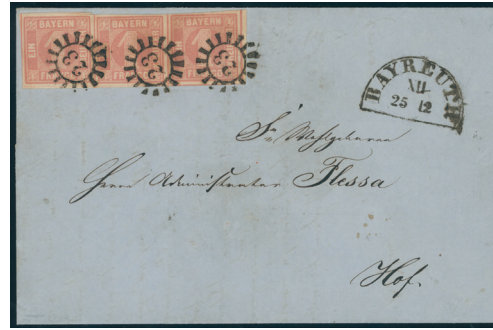 BAYERN BAYERN BAYERN
EIN
23 23 23
BAYREUTH
XII
25 12
Sr. Wohlgeboren
Herrn Administrator Flessa
Hof.